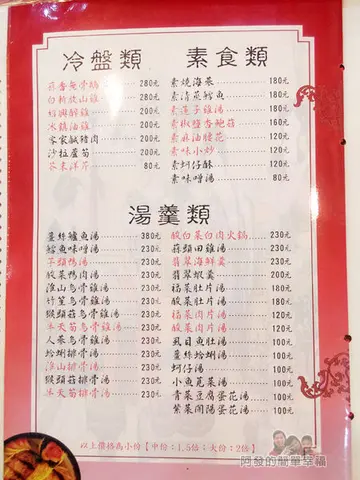 冷盤類
蒜香無骨鵝 280元
白斬放山雞 280元
紹興醉雞 200元
冰鎮油雞 200元
客家鹹豬肉 200元
沙拉蘆筍 200元
芥末洋芹 80元
素食類
素燒海蔘 180元
素清蒸鱈魚 180元
素蓮子雞湯 180元
素椒鹽杏鮑菇 160元
素麻油腰花 120元
素味小炒 120元
素蚵仔酥 120元
素味噌湯 80元
湯羹類
薑絲鱸魚湯 380元
鱈魚味噌湯 230元
芋頭鴨湯 230元
酸菜鴨肉湯 230元
淮山烏骨雞湯 230元
竹笙烏骨雞湯 230元
猴頭菇烏骨雞湯 230元
半天筍烏骨雞湯 230元
人蔘烏骨雞湯 230元
蛤蜊排骨湯 230元
淮山排骨湯 230元
猴頭菇排骨湯 230元
半天筍排骨湯 230元
酸白菜白肉火鍋 230元
蒜頭田雞湯 230元
翡翠海鮮羹 230元
翡翠蝦羹 200元
福菜肚片湯 180元
酸菜肚片湯 180元
福菜肉片湯 100元
酸菜肉片湯 100元
虱目魚肚湯 100元
薑絲蛤蜊湯 100元
蚵仔湯 100元
小魚莧菜湯 100元
青菜豆腐蛋花湯 100元
紫菜開陽蛋花湯 100元
以上價格為小份【中份：1.5倍；大份：2倍】
阿發的簡單幸福